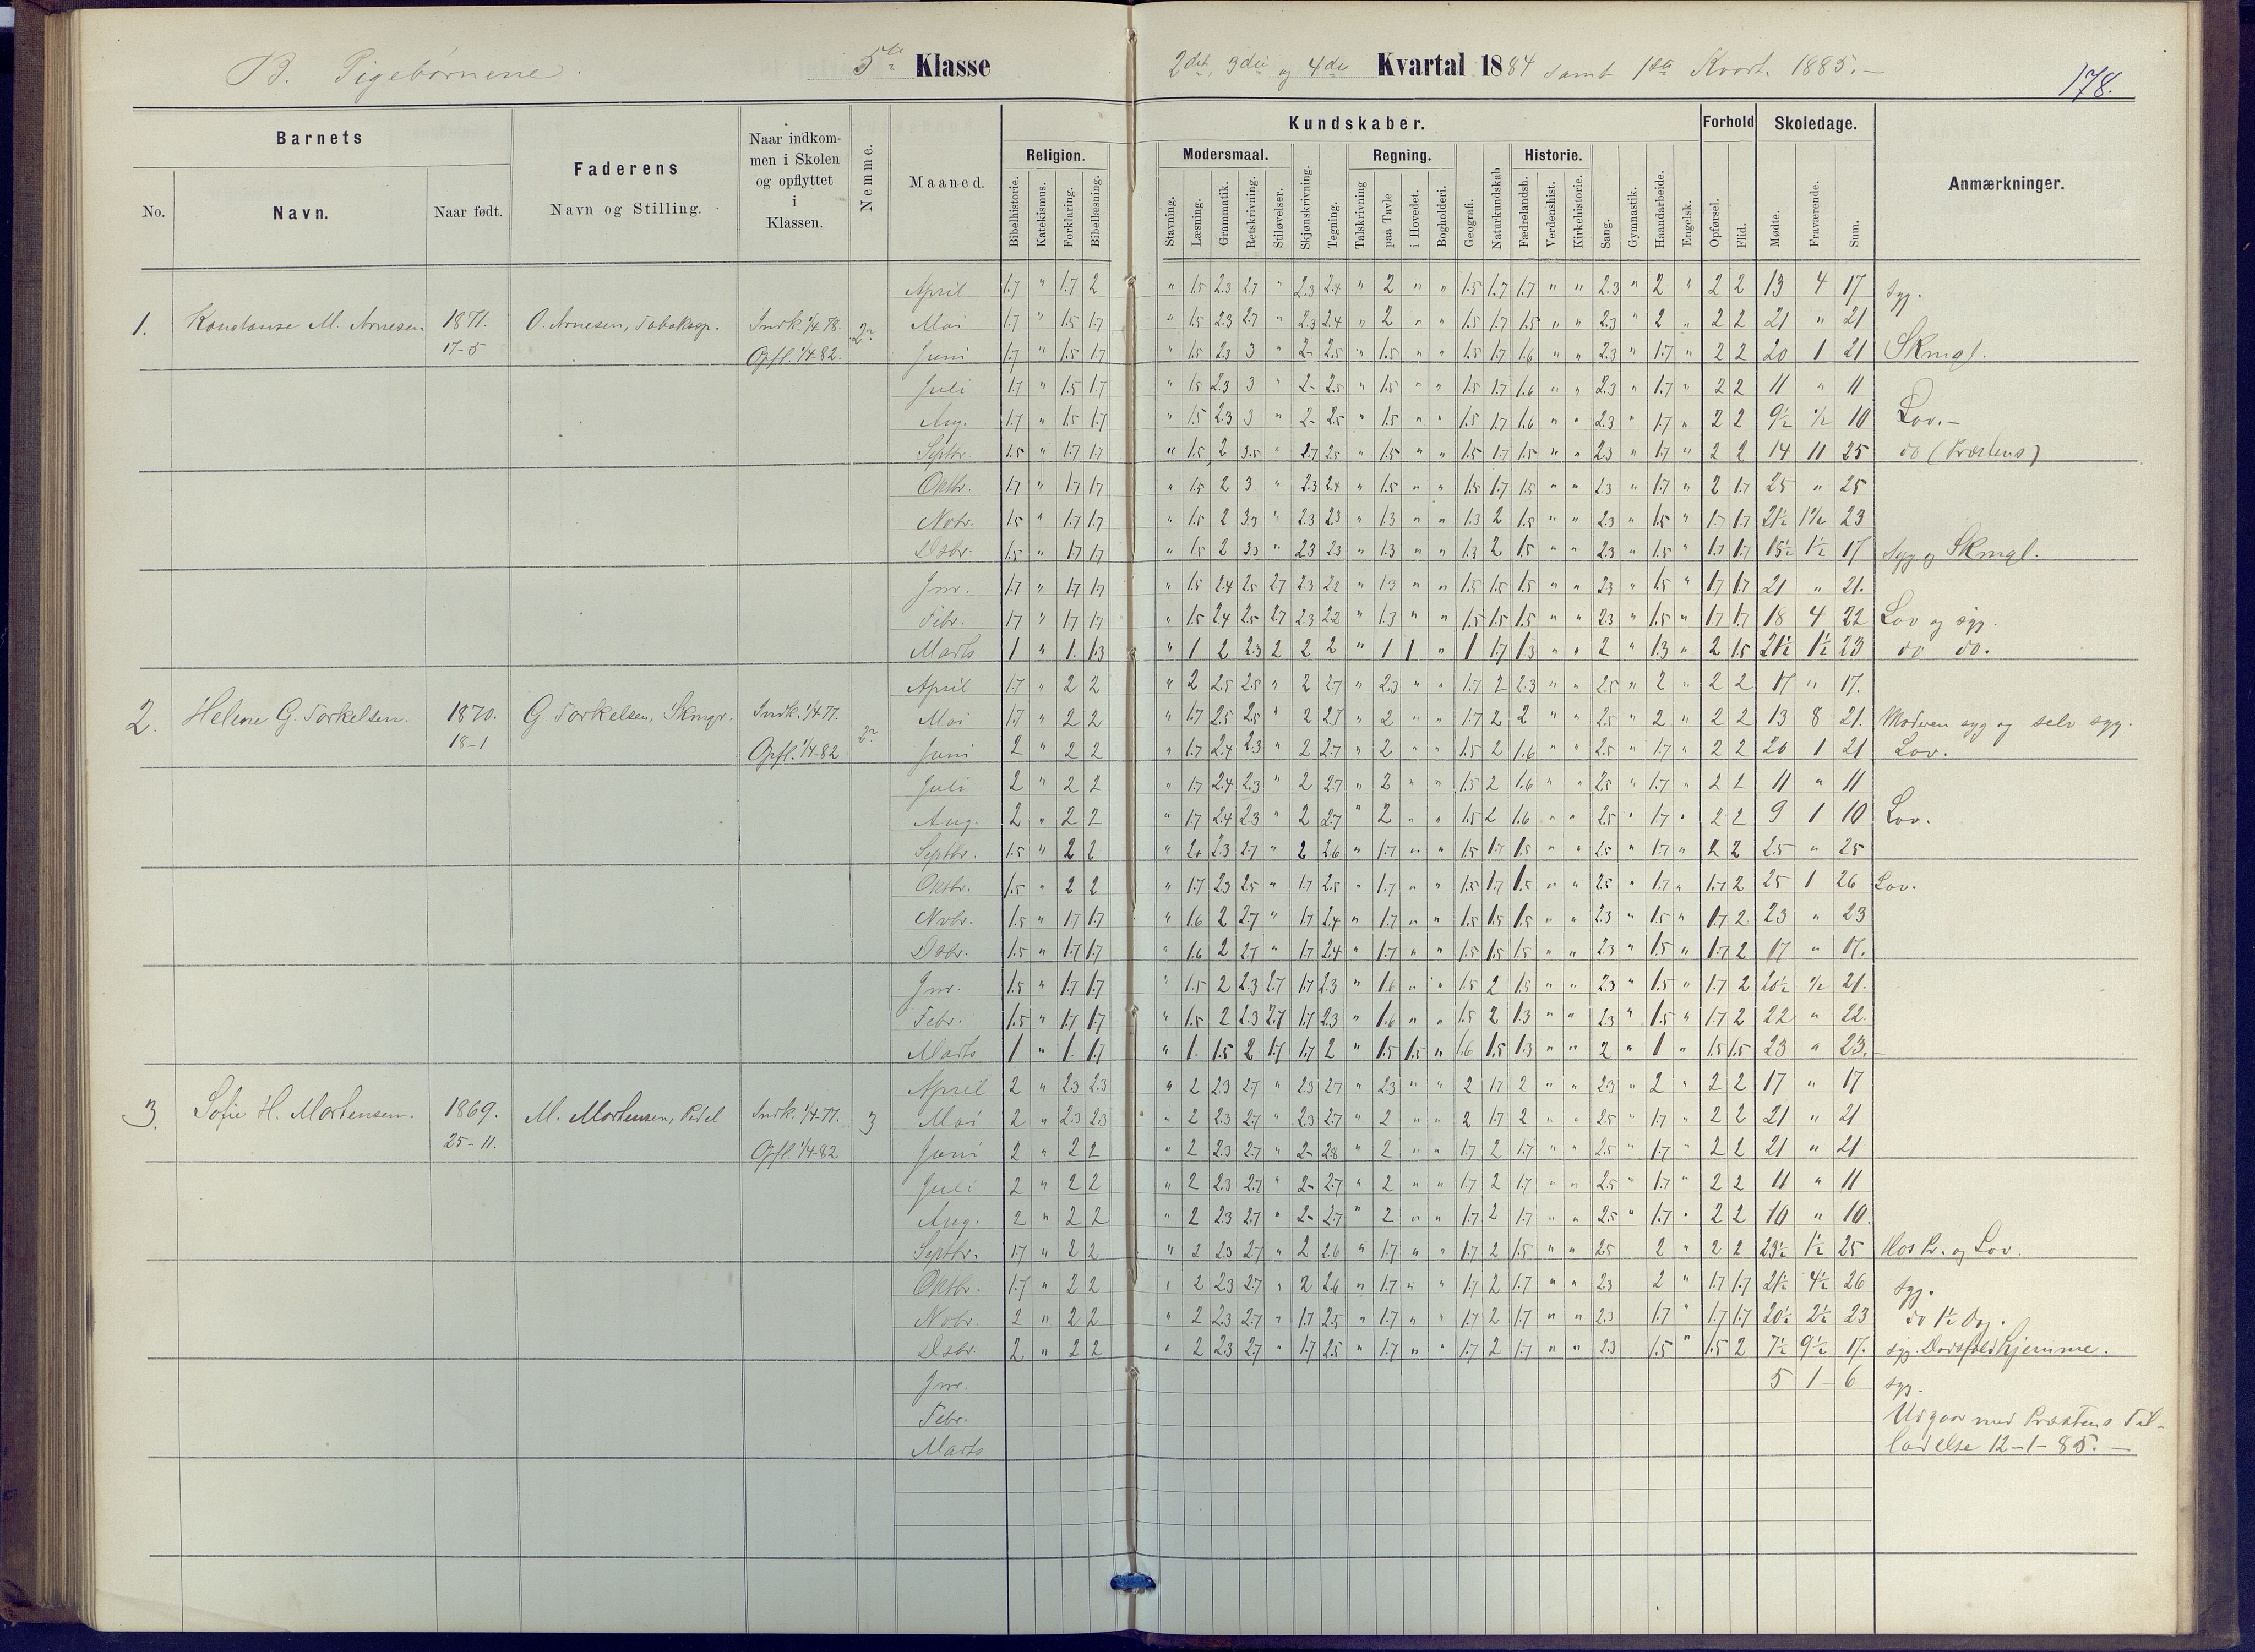 B. Pigebørnene. 5te Klasse 2det, 3die og 4de Kvartal 1884 samt 1ste Kvart. 1885.—
178.
Barnets
No.
Navn.
Naar født.
Faderens
Navn og Stilling.
Naar indkom-
men i Skolen
og opflyttet
i
Klassen.
Nemme.
Maaned.
Kundskaber.
Religion.
Bibelhistorie.
Katekismus.
Forklaring.
Bibellæsning.
Modersmaal.
Stavning.
Læsning.
Grammatik.
Retskrivning.
Stiløvelser.
Skjønskrivning.
Tegning.
Regning.
Talskrivning
paa Tavle
i Hovedet.
Bogholderi.
Geografi.
Naturkundskab
Historie.
Fædrelandsh.
Verdenshist.
Kirkehistorie.
Sang.
Gymnastik.
Haandarbeide.
Engelsk.
Forhold
Opførsel.
Flid.
Skoledage.
Mødte.
Fraværende.
Sum.
Anmærkninger.
1. Konstanse M. Arnesen 1871. 17-5 O. Arnesen, Tobaksp. Indk. 1/4 78. Opfl. 1/4-82. 2
April 1.7 " 1.7 2 " 1.5 2.3 2.7 " 2.3 2.4 " 2 " " 1.5 1.7 1.7 " " 2.3 " 2 " 2 2 13 4 17 syg.
Mai 1.7 " 1.5 1.7 " 1.5 2.3 2.7 " 2.3 2.4 " 2 " " 1.5 1.7 1.5 " " 2.3 " 2 " 2 2 21 " 21
Juni 1.7 " 1.5 1.7 " 1.5 2.3 3 " 2- 2.5 " 1.5 " " 1.5 1.7 1.6 " " 2.3 " 1.7 " 2 2 20 1 21 Skmgl.
Juli 1.7 " 1.5 1.7 " 1.5 2.3 3 " 2- 2.5 " 1.5 " " 1.5 1.7 1.6 " " 2.3 " 1.7 " 2 2 11 " 11
Aug. 1.7 " 1.5 1.7 " 1.5 2.3 3 " 2- 2.5 " 1.5 " " 1.5 1.7 1.6 " " 2.3 " 1.7 " 2 2 9½ ½ 10 Lov.—
Septbr. 1.5 " 1.7 1.7 " 1.5 2 3.5 " 2.7 2.5 " 1.5 " " 1.5 1.7 1.5 " " 2.3 " 1.7 " 2 2 14 11 25 do (Præstens)
Oktbr. 1.7 " 1.7 1.7 " 1.5 2 3 " 2.3 2.4 " 1.5 " " 1.5 1.7 1.5 " " 2.3 " 1.7 " 2 1.7 25 " 25
Novbr. 1.5 " 1.7 1.7 " 1.5 2 3.3 " 2.3 2.3 " 1.3 " " 1.3 2 1.5 " " 2.3 " 1.5 " 1.7 1.7 21½ 1½ 23
Dsbr. 1.5 " 1.7 1.7 " 1.5 2 3.3 " 2.3 2.3 " 1.3 " " 1.3 2 1.5 " " 2.3 " 1.5 " 1.7 1.7 15½ 1½ 17 syg og Skmgl.
Jnr. 1.7 " 1.7 1.7 " 1.5 2.4 2.5 2.7 2.3 2.2 " 1.3 " " 1.5 1.5 1.5 " " 2.3 " 1.5 " 1.7 1.7 21 " 21.
Febr. 1.7 " 1.7 1.7 " 1.5 2.4 2.5 2.7 2.3 2.2 " 1.3 " " 1.5 1.5 1.5 " " 2.3 " 1.5 " 1.7 1.7 18 4 22 Lov og syg.
Marts 1 " 1. 1.3 " 1 2 2.3 2 2 2 " 1 1 " 1 1.7 1.3 " " 2 " 1.3 " 2 1.5 21½ 1½ 23 do do.
2. Helene G. Torkelsen. 1870. 18-1 G. Torkelsen, Skmgr. Indk. 1/4 77. Opfl. 1/4-82 2
April 1.7 " 2 2 " 2 2.5 2.5 " 2 2.7 " 2.3 " " 1.7 2 2.3 " " 2.5 " 2 " 2 2 17 " 17.
Mai 1.7 " 2 2 " 1.7 2.5 2.5 " 2 2.7 " 2 " " 1.7 2 2 " " 2.5 " 2 " 2 2 13 8 21. Moderen syg og selv syg.
Juni 2 " 2 2 " 1.7 2.4 2.3 " 2 2.7 " 2 " " 1.5 2 1.6 " " 2.5 " 1.7 " 2 2 20 1 21 Lov.
Juli 2 " 2 2 " 1.7 2.4 2.3 " 2 2.7 " 2 " " 1.5 2 1.6 " " 2.5 " 1.7 " 2 2 11 " 11
Aug. 2 " 2 2 " 1.7 2.4 2.3 " 2 2.7 " 2 " " 1.5 2 1.6 " " 2.5 " 1.7 " 2 2 9 1 10 Lov.
Septbr. 1.5 " 2 2 " 2+ 2.3 2.7 " 2 2.6 " 1.7 " " 1.5 1.7 1.5 " " 2.5 " 1.7 " 2 2 25 " 25
Oktbr. 1.5 " 2 2 " 1.7 2.3 2.5 " 1.7 2.5 " 1.7 " " 1.5 1.7 1.5 " " 2.5 " 1.7 " 1.7 2 25 1 26 Lov.
Nvbr. 1.5 " 1.7 1.7 " 1.6 2 2.7 " 1.7 2.4 " 1.7 " " 1.5 1.5 1.5 " " 2.3 " 1.5 " 1.7 2 23 " 23
Dsbr. 1.5 " 1.7 1.7 " 1.6 2 2.7 " 1.7 2.4 " 1.7 " " 1.5 1.5 1.5 " " 2.3 " 1.5 " 1.7 2 17 " 17.
Jnr. 1.5 " 1.7 1.7 " 1.5 2 2.3 2.7 1.7 2.3 " 1.6 " " 1.5 2 1.5 " " 2.3 " 1.5 " 1.7 2 20½ ½ 21.
Febr. 1.5 " 1.7 1.7 " 1.5 2 2.3 2.7 1.7 2.3 " 1.6 " " 1.5 2 1.3 " " 2.3 " 1.5 " 1.7 2 22 " 22.
Marts 1 " 1. 1.7 " 1. 1.5 2 1.7 1.7 2 " 1.5 1.5 " 1.6 1.5 1.3 " " 2 " 1 " 1.5 1.5 23 " 23.
3. Sofie H. Mortensen. 1869. 25-11. M. Mortensen, Pedel Indk. 1/4-77. Opfl. 1/4-82 3
April 2 " 2.3 2.3 " 2 2.3 2.7 " 2.3 2.7 " 2.3 " " 2 1.7 2 " " 2.3 " 2 " 2 2 17 " 17
Mai 2 " 2.3 2.3 " 2 2.3 2.7 " 2.3 2.7 " 2 " " 2 1.7 2 " " 2.5 " 1.7 " 2 2 21 " 21
Juni 2 " 2 2 " 2 2.3 2.7 " 2- 2.8 " 2 " " 1.7 2 1.7 " " 2.5 " 1.7 " 2 2 21 " 21
Juli 2 " 2 2 " 2 2.3 2.7 " 2- 2.7 " 2 " " 1.7 2 1.7 " " 2.5 " 1.7 " 2 2 11 " 11
Aug. 2 " 2 2 " 2 2.3 2.7 " 2- 2.7 " 2 " " 1.7 2 1.7 " " 2.5 " 1.7 " 2 2 10 " 10.
Septbr. 1.7 " 2 2 " 2 2.3 2.7 " 2 2.6 " 1.7 " " 1.7 2 1.5 " " 2.5 2 " 2 2 23½ 1½ 25 Hos Pr. og Lov.
Oktbr. 1.7 " 2 2 " 2 2.3 2.7 " 2 2.6 " 1.7 " " 1.7 2 1.7 " " 2.3 2 " 1.7 1.7 21½ 4½ 26 syg.
Nvbr. 2 " 2 2 " 2 2.3 2.7 " 1.7 2.5 " 1.7 " " 1.7 2 1.7 " " 2.3 1.7 " 1.7 1.7 20½ 2½ 23 do 1½ Dag.
Dsbr. 2 " 2 2 " 2 2.3 2.7 " 1.7 2.5 " 1.7 " " 1.7 2 1.7 " " 2.3 1.5 " 1.5 2 7½ 9½ 17. syg. Dødsfald hjemme.
Jnr. 5 1 6 syg.
Febr. Udgaar med Præstens Til-
Marts ladelse 12-1-85.—